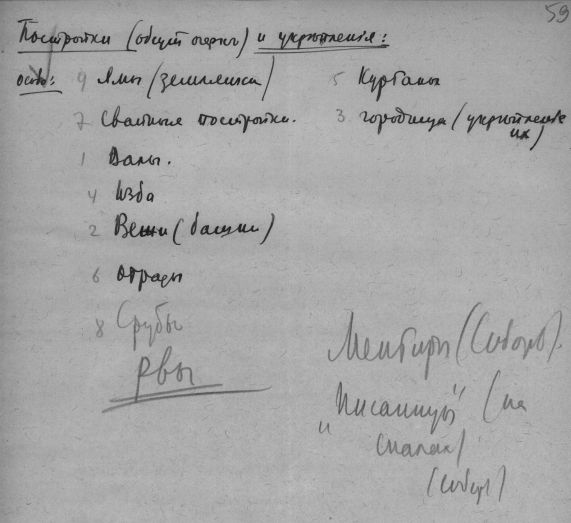 59
Постройки (общий очерк) и укрѣпленія:
особ:
9 Ямы (землянки)
7 Свайные постройки.
1 Валы.
4 Изба
2 Вежи (башни)
6 Ограды
8 Срубы
Рвы
5 Курганы
3 городища (укрѣпленіе
их)
Менгиры (Сибирь).
"Писаницы" (на
скалах)
(Сибир)